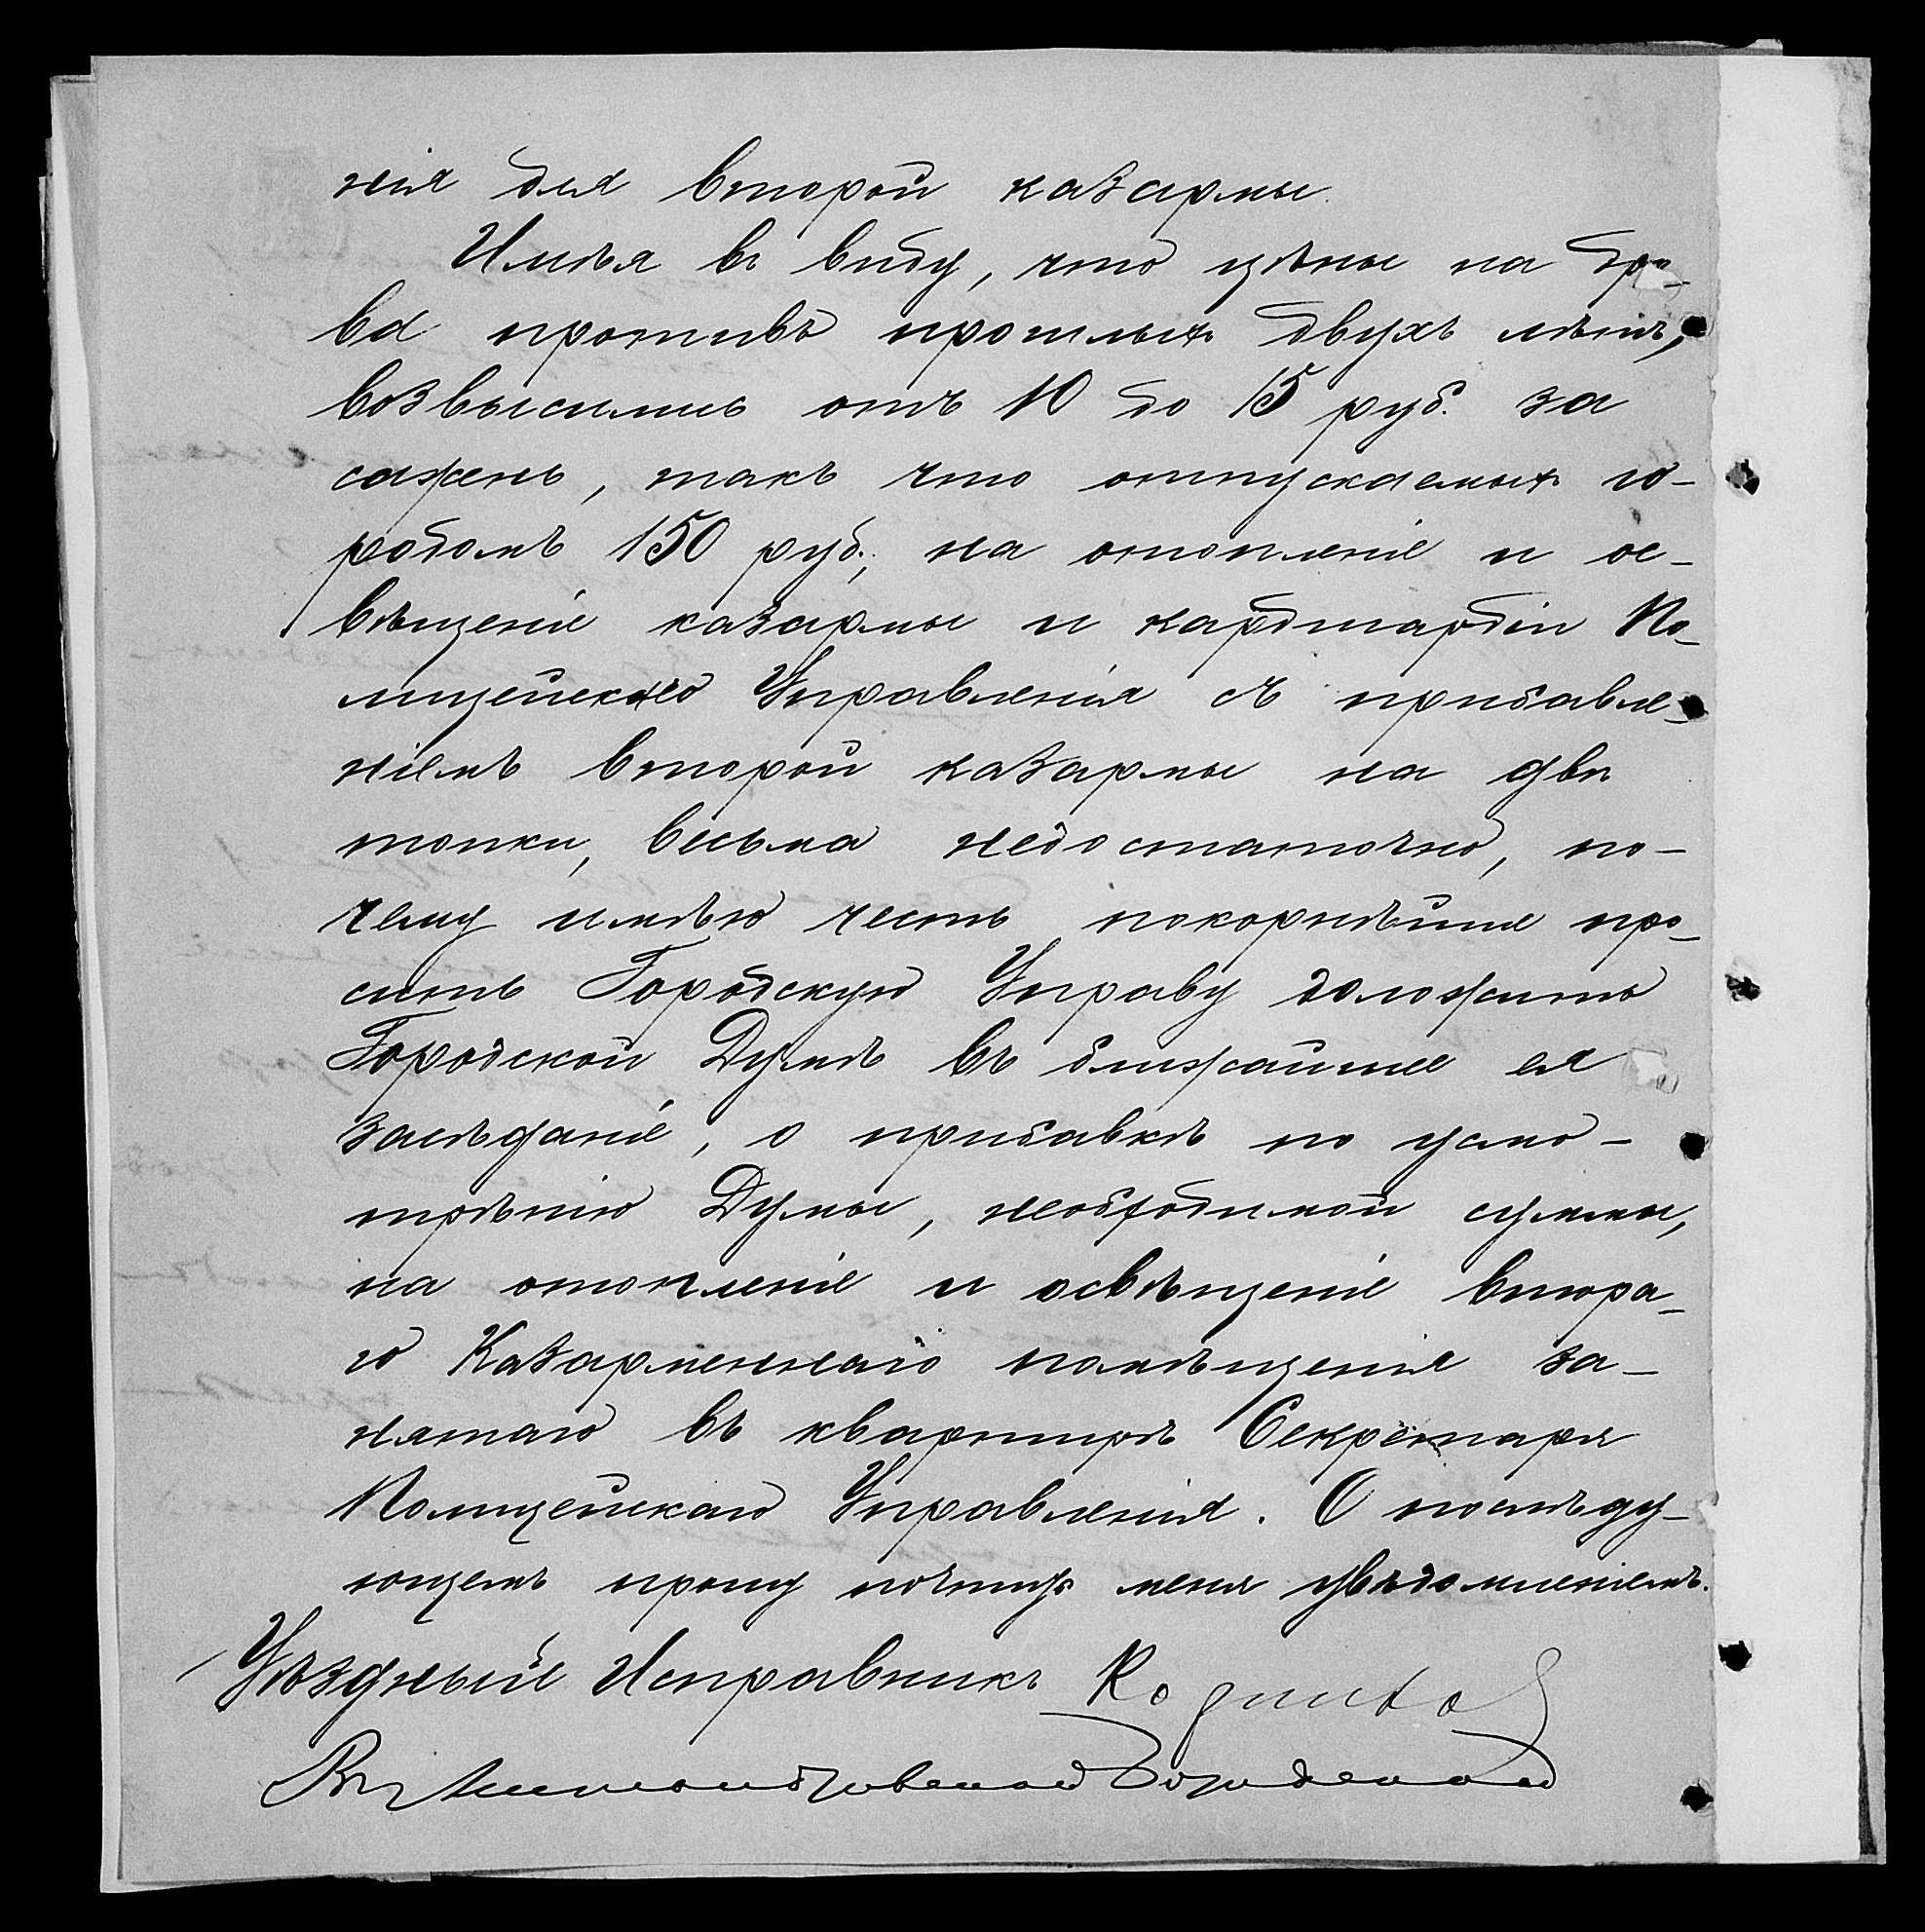 нія для второй казармы.
Имѣя въ виду, что цѣны на дро-
ва противъ прошлыхъ двухъ лѣтъ,
возвысились отъ 10 до 15 руб. за
сажень, такъ что отпускаемыхъ го-
родомъ 150 руб., на отопленіе и ос-
вѣщеніе казармы и кардигардіи По-
лицейскаго Управленія съ прибавле-
ніемъ второй казармы на двѣ
топки, весьма недостаточно, по-
чему имѣю честь покорнѣйше про-
сить Городскую Управу доложить
Городской Думѣ въ ближайшее ея
засѣданіе, о прибавкѣ по усмо-
трѣнію Думы, необходимой суммы,
на отопленіе и освѣщеніе втора-
го Казарменнаго помѣщенія за-
нятаго въ квартирѣ Секретаря
Полицейскаго Управленія. О послѣду-
ющемъ прошу почтить меня увѣдомленіемъ.
Уѣздный Исправникъ